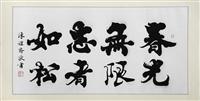 春光
無限
忠者
如松